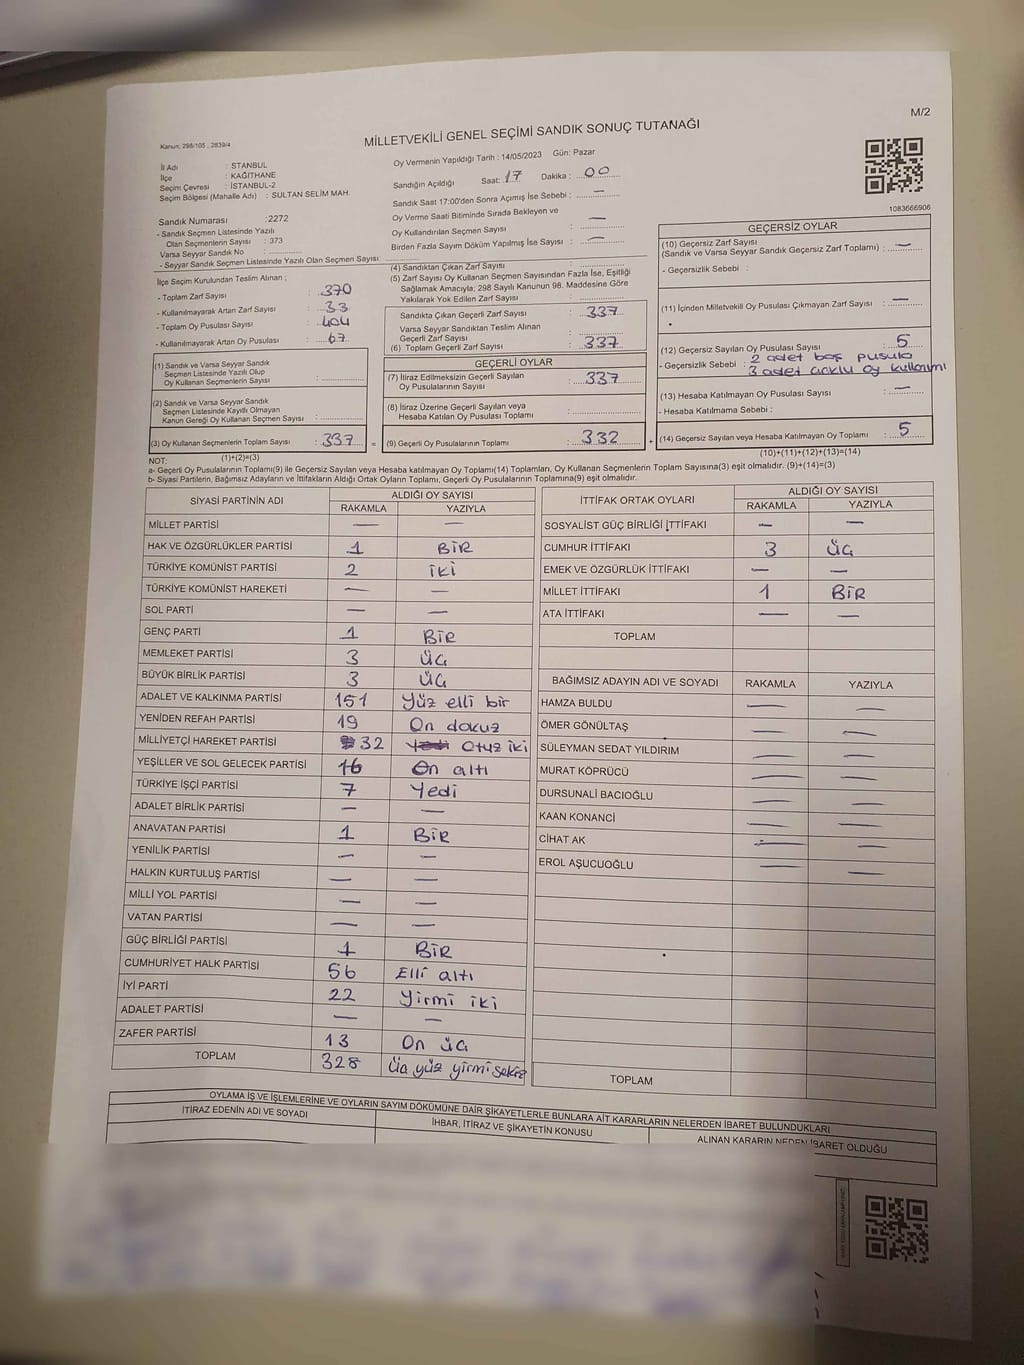 M/2
Kanun, 298/105 , 2839/4
MİLLETVEKİLİ GENEL SEÇİMİ SANDIK SONUÇ TUTANAĞI
İl Adı : STANBUL
İlçe : KAĞITHANE
Seçim Çevresi : İSTANBUL-2
Seçim Bölgesi (Mahalle Adı) : SULTAN SELİM MAH.
Oy Vermenin Yapıldığı Tarih : 14/05/2023 Gün: Pazar
Sandığın Açıldığı Saat: 17 Dakika : 00
Sandık Saat 17:00'den Sonra Açımış İse Sebebi : —
Oy Verme Saati Bitiminde Sırada Bekleyen ve
Oy Kullandırılan Seçmen Sayısı : —
Birden Fazla Sayım Döküm Yapılmış İse Sayısı : —
1083666906
Sandık Numarası :2272
- Sandık Seçmen Listesinde Yazılı
Olan Seçmenlerin Sayısı : 373
Varsa Seyyar Sandık No :
- Seyyar Sandık Listesinde Yazılı Olan Seçmen Sayısı
İlçe Seçim Kurulundan Teslim Alınan ;
- Toplam Zarf Sayısı : 370
- Kullanılmayarak Artan Zarf Sayısı : 33
- Toplam Oy Pusulası Sayısı : 404
- Kullanılmayarak Artan Oy Pusulası : 67
(1) Sandık ve Varsa Seyyar Sandık
Seçmen Listesinde Yazılı Olup
Oy Kullanan Seçmenlerin Sayısı :
(2) Sandık ve Varsa Seyyar Sandık
Seçmen Listesinde Kayıtlı Olmayan
Kanun Gereği Oy Kullanan Seçmen Sayısı :
(3) Oy Kullanan Seçmenlerin Toplam Sayısı : 337 =
(4) Sandıktan Çıkan Zarf Sayısı :
(5) Zarf Sayısı Oy Kullanan Seçmen Sayısından Fazla İse, Eşitliği
Sağlamak Amacıyla; 298 Sayılı Kanunun 98. Maddesine Göre
Yakılarak Yok Edilen Zarf Sayısı :
Sandıkta Çıkan Geçerli Zarf Sayısı : 337
Varsa Seyyar Sandıktan Teslim Alınan
Geçerli Zarf Sayısı :
(6) Toplam Geçerli Zarf Sayısı : 337
GEÇERLİ OYLAR
(7) İtiraz Edilmeksizin Geçerli Sayılan
Oy Pusulasının Sayısı : 337
(8) İtiraz Üzerine Geçerli Sayılan veya
Hesaba Katılan Oy Pusulası Toplamı :
(9) Geçerli Oy Pusulalarının Toplamı : 332 +
GEÇERSİZ OYLAR
(10) Geçersiz Zarf Sayısı
(Sandık ve Varsa Seyyar Sandık Geçersiz Zarf Toplamı) : —
- Geçersizlik Sebebi :
(11) İçinden Milletvekili Oy Pusulası Çıkmayan Zarf Sayısı : —
(12) Geçersiz Sayılan Oy Pusulası Sayısı : 5
- Geçersizlik Sebebi : 2 adet boş pusula
3 adet
(13) Hesaba Katılmayan Oy Pusulası Sayısı : —
- Hesaba Katılmama Sebebi :
(14) Geçersiz Sayılan veya Hesaba Katılmayan Oy Toplamı : 5
NOT: (1)+(2)=(3)
(10)+(11)+(12)+(13)=(14)
a- Geçerli Oy Pusulalarının Toplamı(9) ile Geçersiz Sayılan veya Hesaba katılmayan Oy Toplamı(14) Toplamları, Oy Kullanan Seçmenlerin Toplam Sayısına(3) eşit olmalıdır. (9)+(14)=(3)
b- Siyasi Partilerin, Bağımsız Adayların ve İttifakların Aldığı Ortak Oyların Toplamı, Geçerli Oy Pusulalarının Toplamına(9) eşit olmalıdır.
SİYASİ PARTİNİN ADI ALDIĞI OY SAYISI
RAKAMLA YAZIYLA
MİLLET PARTİSİ — —
HAK VE ÖZGÜRLÜKLER PARTİSİ 1 BİR
TÜRKİYE KOMÜNİST PARTİSİ 2 iki
TÜRKİYE KOMÜNİST HAREKETİ — —
SOL PARTİ — —
GENÇ PARTİ 1 BİR
MEMLEKET PARTİSİ 3 üç
BÜYÜK BİRLİK PARTİSİ 3 üç
ADALET VE KALKINMA PARTİSİ 151 Yüz elli bir
YENİDEN REFAH PARTİSİ 19 On dokuz
MİLLİYETÇİ HAREKET PARTİSİ 32 Otuz iki
YEŞİLLER VE SOL GELECEK PARTİSİ 16 On altı
TÜRKİYE İŞÇİ PARTİSİ 7 Yedi
ADALET BİRLİK PARTİSİ — —
ANAVATAN PARTİSİ 1 BİR
YENİLİK PARTİSİ — —
HALKIN KURTULUŞ PARTİSİ — —
MİLLİ YOL PARTİSİ — —
VATAN PARTİSİ — —
GÜÇ BİRLİĞİ PARTİSİ 1 BİR
CUMHURİYET HALK PARTİSİ 56 Elli altı
İYİ PARTİ 22 Yirmi iki
ADALET PARTİSİ — —
ZAFER PARTİSİ 13 On üç
TOPLAM 328 Üç yüz yirmi sekiz
İTTİFAK ORTAK OYLARI ALDIĞI OY SAYISI
RAKAMLA YAZIYLA
SOSYALİST GÜÇ BİRLİĞİ İTTİFAKI — —
CUMHUR İTTİFAKI 3 üç
EMEK VE ÖZGÜRLÜK İTTİFAKI — —
MİLLET İTTİFAKI 1 BİR
ATA İTTİFAKI — —
TOPLAM
BAĞIMSIZ ADAYIN ADI VE SOYADI RAKAMLA YAZIYLA
HAMZA BULDU — —
ÖMER GÖNÜLTAŞ — —
SÜLEYMAN SEDAT YILDIRIM — —
MURAT KÖPRÜCÜ — —
DURSUNALİ BACIOĞLU — —
KAAN KONANCİ — —
CİHAT AK — —
EROL AŞUCUOĞLU — —
TOPLAM
OYLAMA İŞ VE İŞLEMLERİNE VE OYLARIN SAYIM DÖKÜMÜNE DAİR ŞİKAYETLERLE BUNLARA AİT KARARLARIN NELERDEN İBARET BULUNDUKLARI
İTİRAZ EDENİN ADI VE SOYADI İHBAR, İTİRAZ VE ŞİKAYETİN KONUSU ALINAN KARARIN NEDEN İBARET OLDUĞU